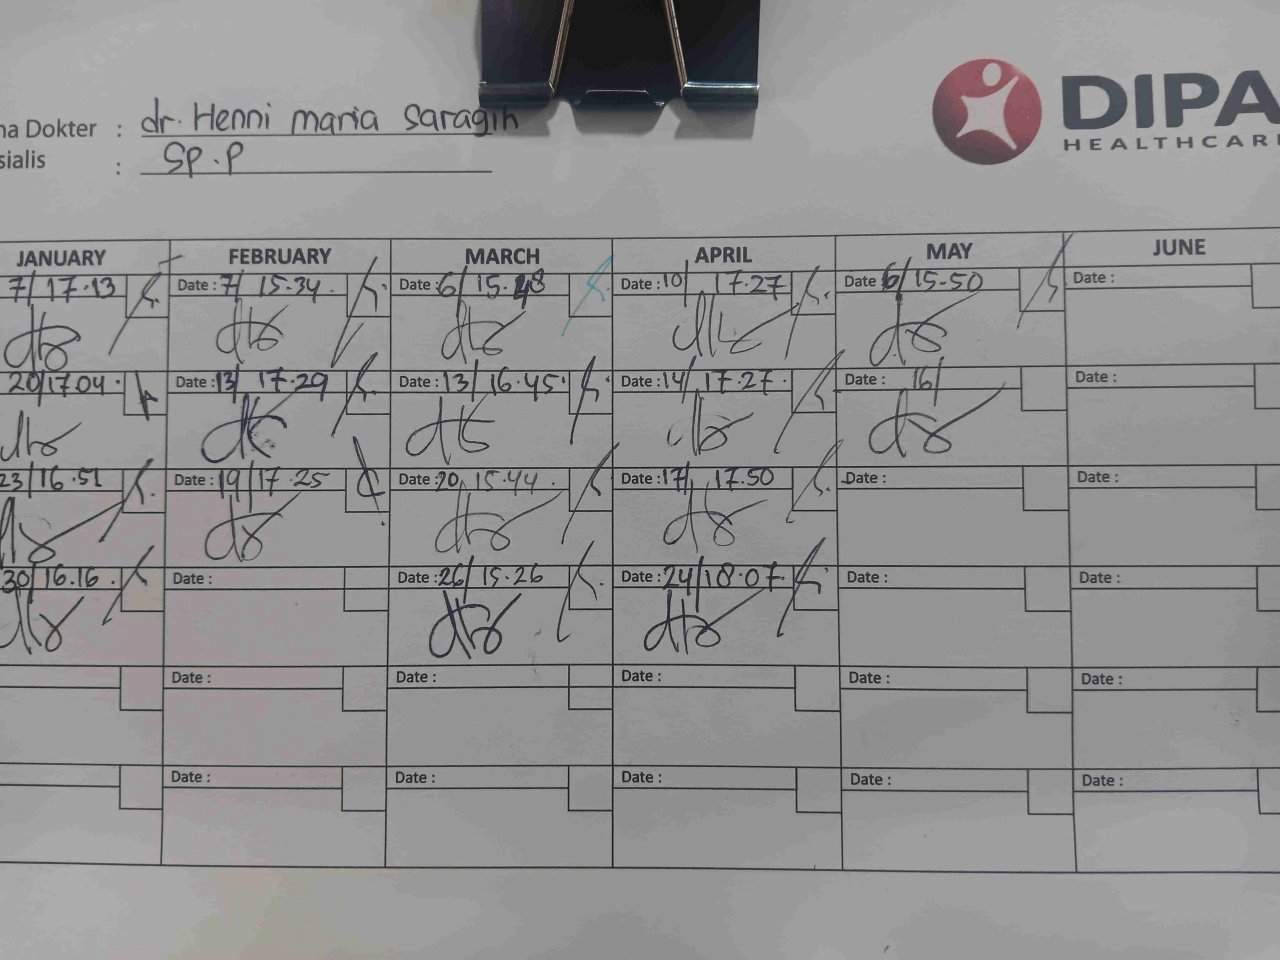 dr. Henni maria Saragih
na Dokter :
DIPA
HEALTHCAR
sialis : Sp.P
JANUARY FEBRUARY MARCH APRIL MAY JUNE
7/ 17.13 Date : 7/ 15.34 Date : 6/ 15.48 Date : 10/ 17.27 Date : 6/ 15-50 Date :
20/17.04 Date : 13/ 17.29 Date : 13/ 16.45 Date : 14/ 17.27 Date : 16/ Date :
23/16.51 Date : 19/17.25 Date : 20/ 15.44 Date : 17/ 17.50 Date : Date :
30/16.16 Date : Date : 26/ 15.26 Date : 24/18.07 Date : Date :
Date : Date : Date : Date : Date :
Date : Date : Date : Date : Date :